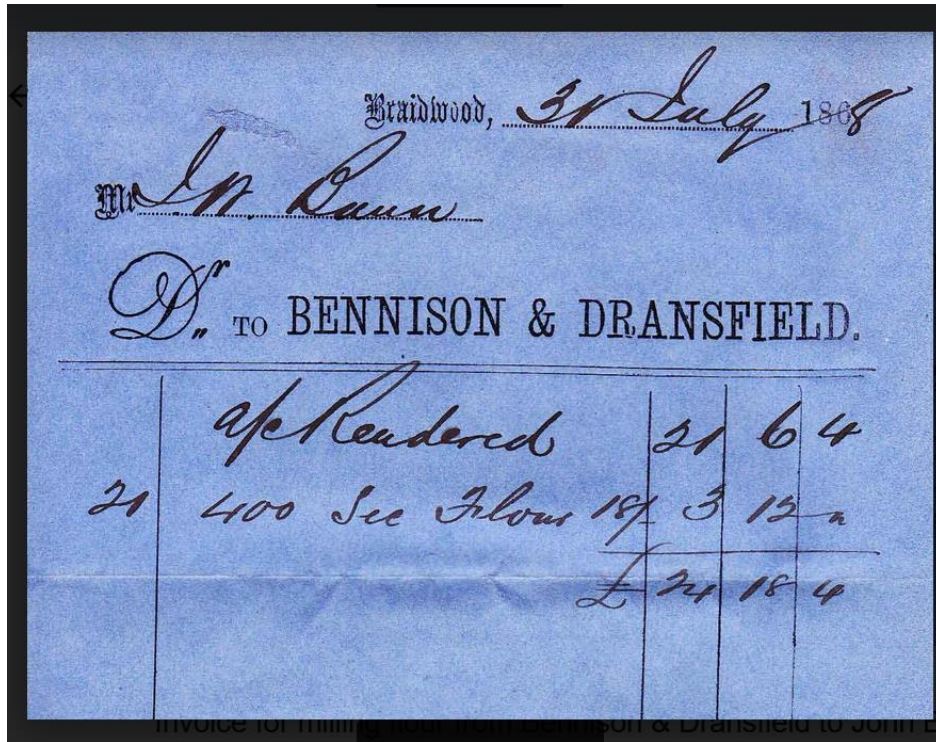 Braidwood, 31 July 1868
Mr J.W. Bunn
Dr. TO BENNISON & DRANSFIELD.
a/c Rendered 21 6 4
21 400 Sec Flour 18/ 3 12 "
£ 24 18 4
Invoice for milling flour from Bennison & Dransfield to John B